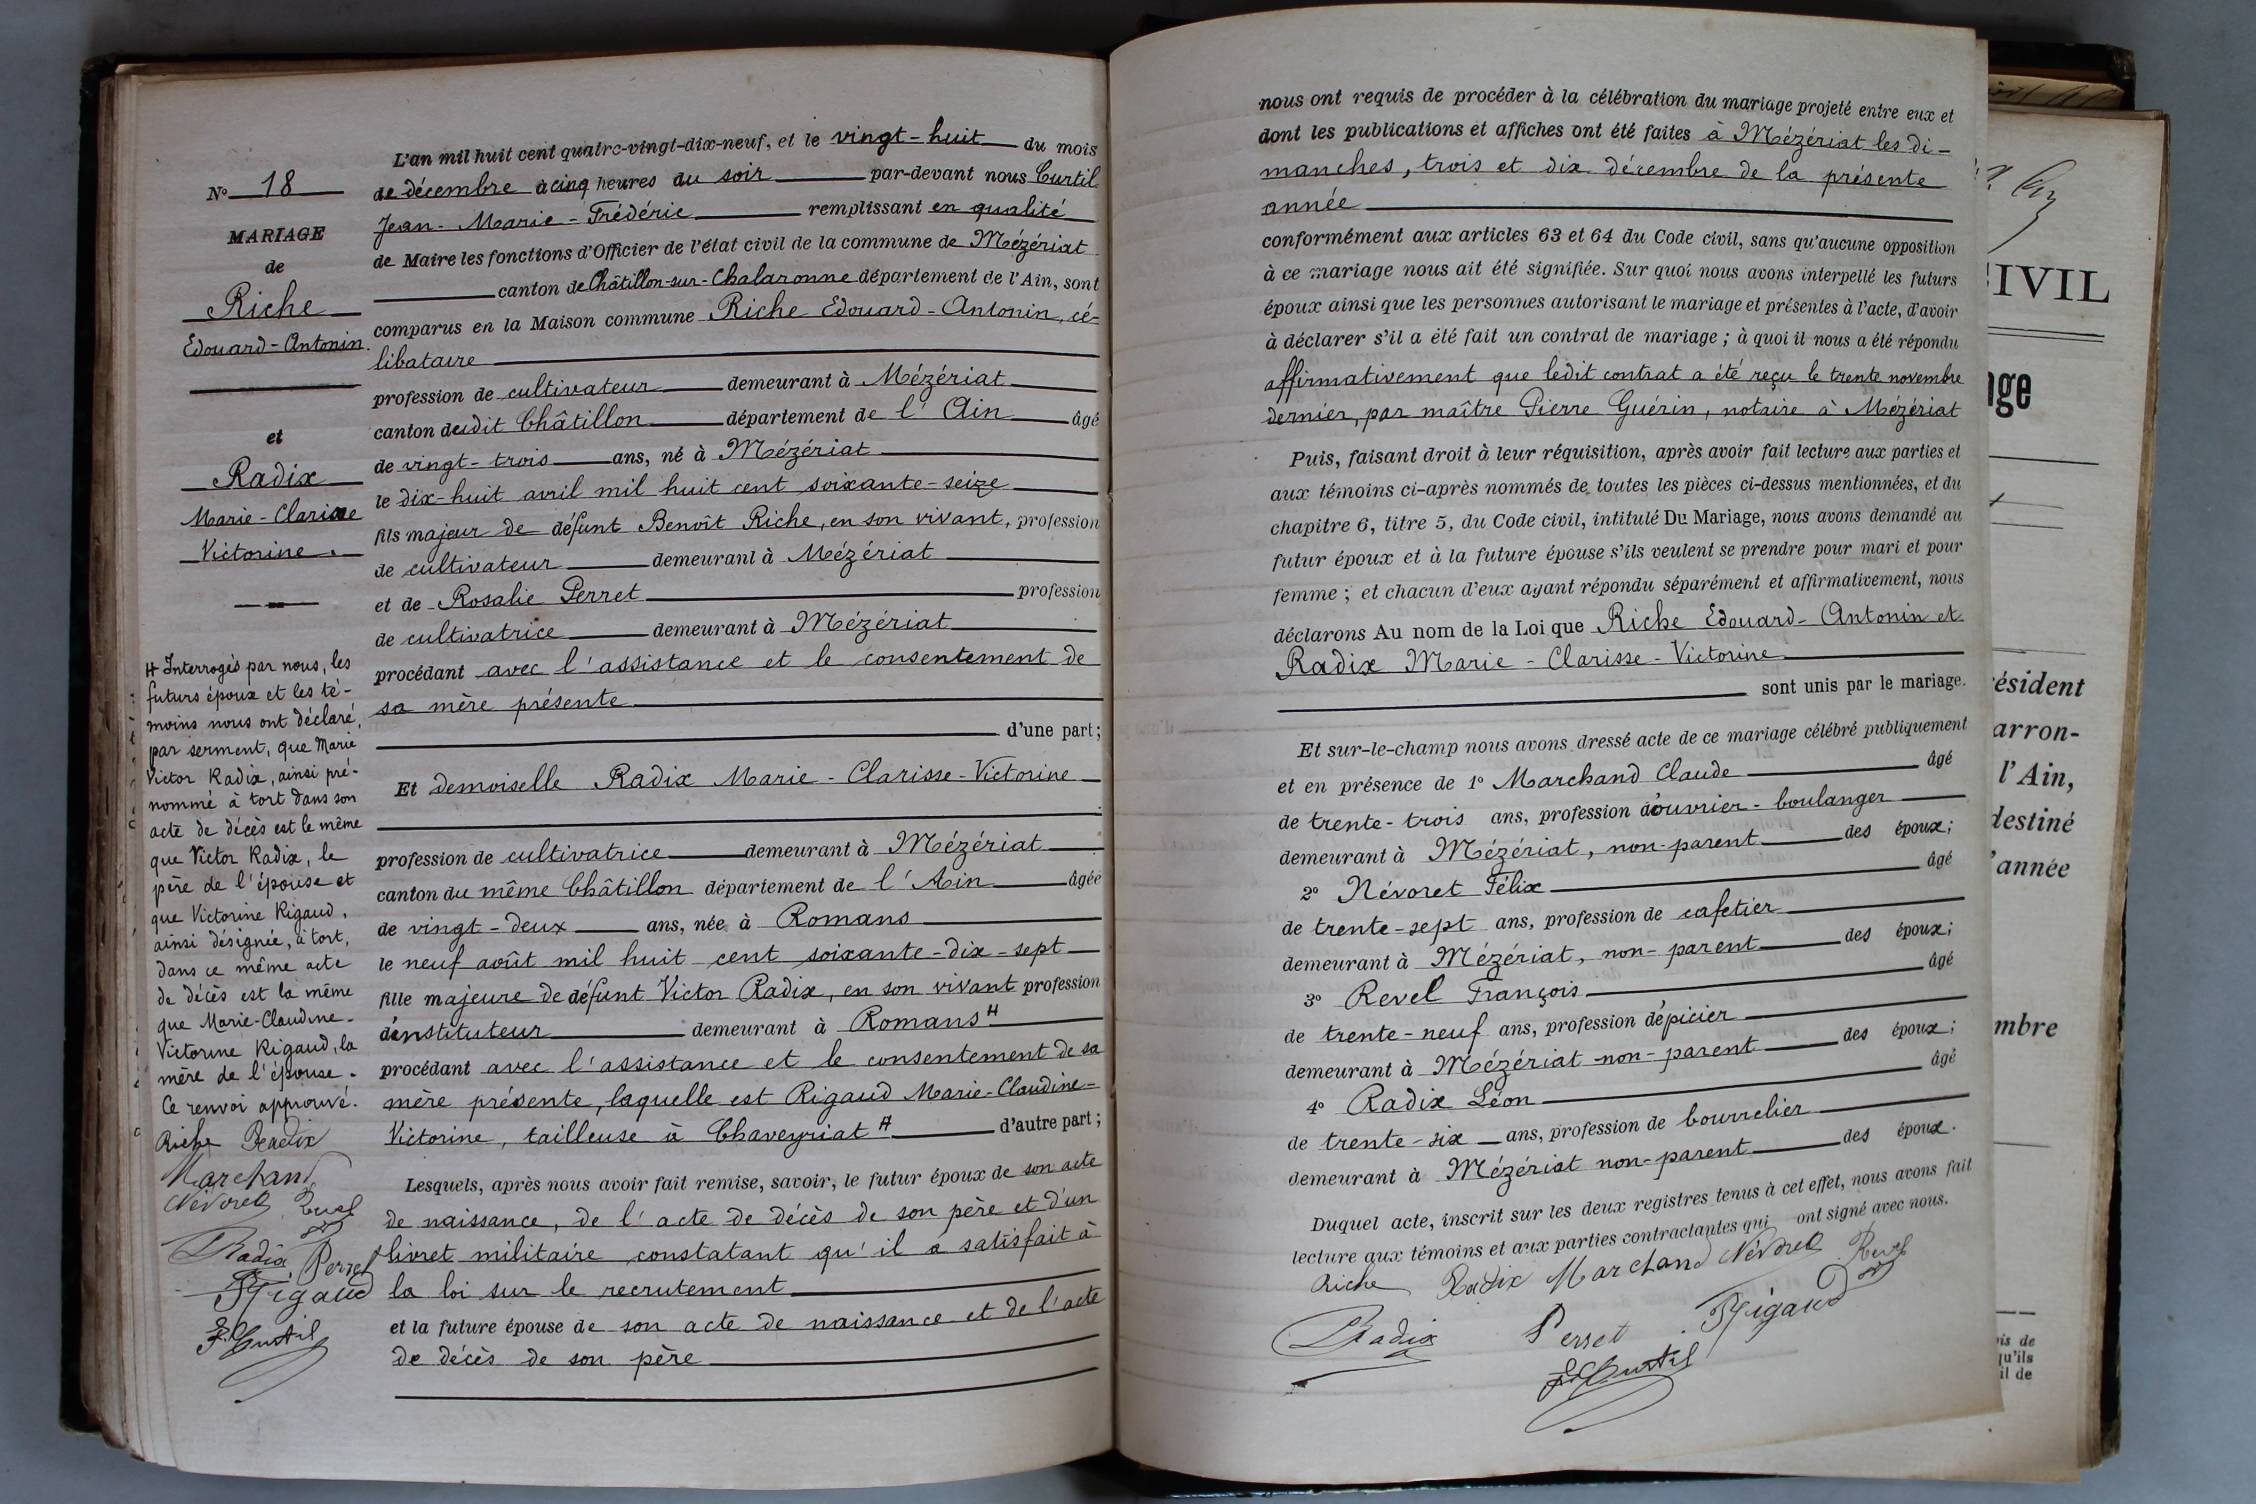 N° 18
MARIAGE
de
Riche
Edouard-Antonin.
et
Radix
Marie-Clarisse
Victorine.
H Interrogés par nous, les
futurs époux et les té-
moins nous ont déclaré,
par serment, que Marie
Victor Radix, ainsi pré-
nommé à tort dans son
acte de décès est le même
que Victor Radix, le
père de l'épouse et
que Victorine Rigaud,
ainsi désignée, à tort,
dans ce même acte
de décès est la même
que Marie-Claudine-
Victorine Rigaud, la
mère de l'épouse.
Ce renvoi approuvé.
Riche Radix
Marchand
Névoret Revel
Radix Perret
Rigaud
Curtil
L'an mil huit cent quatre-vingt-dix-neuf, et le vingt-huit du mois
de décembre à cinq heures du soir par-devant nous Curtil
Jean-Marie-Frédéric remplissant en qualité
de Maire les fonctions d'Officier de l'état civil de la commune de Mézériat
canton de Châtillon-sur-Chalaronne département de l'Ain, sont
comparus en la Maison commune Riche Edouard-Antonin, cé-
libataire
profession de cultivateur demeurant à Mézériat
canton dudit Châtillon département de l'Ain âgé
de vingt-trois ans, né à Mézériat
le dix-huit avril mil huit cent soixante-seize
fils majeur de défunt Benoît Riche, en son vivant, profession
de cultivateur demeurant à Mézériat
et de Rosalie Perret profession
de cultivatrice demeurant à Mézériat
procédant avec l'assistance et le consentement de
sa mère présente
d'une part;
Et demoiselle Radix Marie-Clarisse-Victorine
profession de cultivatrice demeurant à Mézériat
canton du même Châtillon département de l'Ain âgée
de vingt-deux ans, née à Romans
le neuf août mil huit cent soixante-dix-sept
fille majeure de défunt Victor Radix, en son vivant profession
d'instituteur demeurant à Romans H
procédant avec l'assistance et le consentement de sa
mère présente, laquelle est Rigaud Marie-Claudine-
Victorine, tailleuse à Chaveyriat H d'autre part;
Lesquels, après nous avoir fait remise, savoir, le futur époux de son acte
de naissance, de l'acte de décès de son père et d'un
livret militaire constatant qu'il a satisfait à
la loi sur le recrutement
et la future épouse de son acte de naissance et de l'acte
de décès de son père
nous ont requis de procéder à la célébration du mariage projeté entre eux et
dont les publications et affiches ont été faites à Mézériat les di-
manches, trois et dix décembre de la présente
année
conformément aux articles 63 et 64 du Code civil, sans qu'aucune opposition
à ce mariage nous ait été signifiée. Sur quoi nous avons interpellé les futurs
époux ainsi que les personnes autorisant le mariage et présentes à l'acte, d'avoir
à déclarer s'il a été fait un contrat de mariage; à quoi il nous a été répondu
affirmativement que ledit contrat a été reçu le trente novembre
dernier, par maître Pierre Guérin, notaire à Mézériat
Puis, faisant droit à leur réquisition, après avoir fait lecture aux parties et
aux témoins ci-après nommés de toutes les pièces ci-dessus mentionnées, et du
chapitre 6, titre 5, du Code civil, intitulé Du Mariage, nous avons demandé au
futur époux et à la future épouse s'ils veulent se prendre pour mari et pour
femme; et chacun d'eux ayant répondu séparément et affirmativement, nous
déclarons Au nom de la Loi que Riche Edouard-Antonin et
Radix Marie-Clarisse-Victorine
sont unis par le mariage.
Et sur-le-champ nous avons dressé acte de ce mariage célébré publiquement
et en présence de 1° Marchand Claude âgé
de trente-trois ans, profession d'ouvrier-boulanger
demeurant à Mézériat, non-parent des époux;
2° Névoret Félix âgé
de trente-sept ans, profession de cafetier
demeurant à Mézériat, non-parent des époux;
3° Revel François âgé
de trente-neuf ans, profession d'épicier
demeurant à Mézériat non-parent des époux;
4° Radix Léon âgé
de trente-six ans, profession de bourrelier
demeurant à Mézériat non-parent des époux.
Duquel acte, inscrit sur les deux registres tenus à cet effet, nous avons fait
lecture aux témoins et aux parties contractantes qui ont signé avec nous.
Riche Radix Marchand Névoret Revel
Radix Perret Rigaud
Curtil
CIVIL
age
résident
arron-
l'Ain,
destiné
l'année
mbre
is de
qu'ils
il de